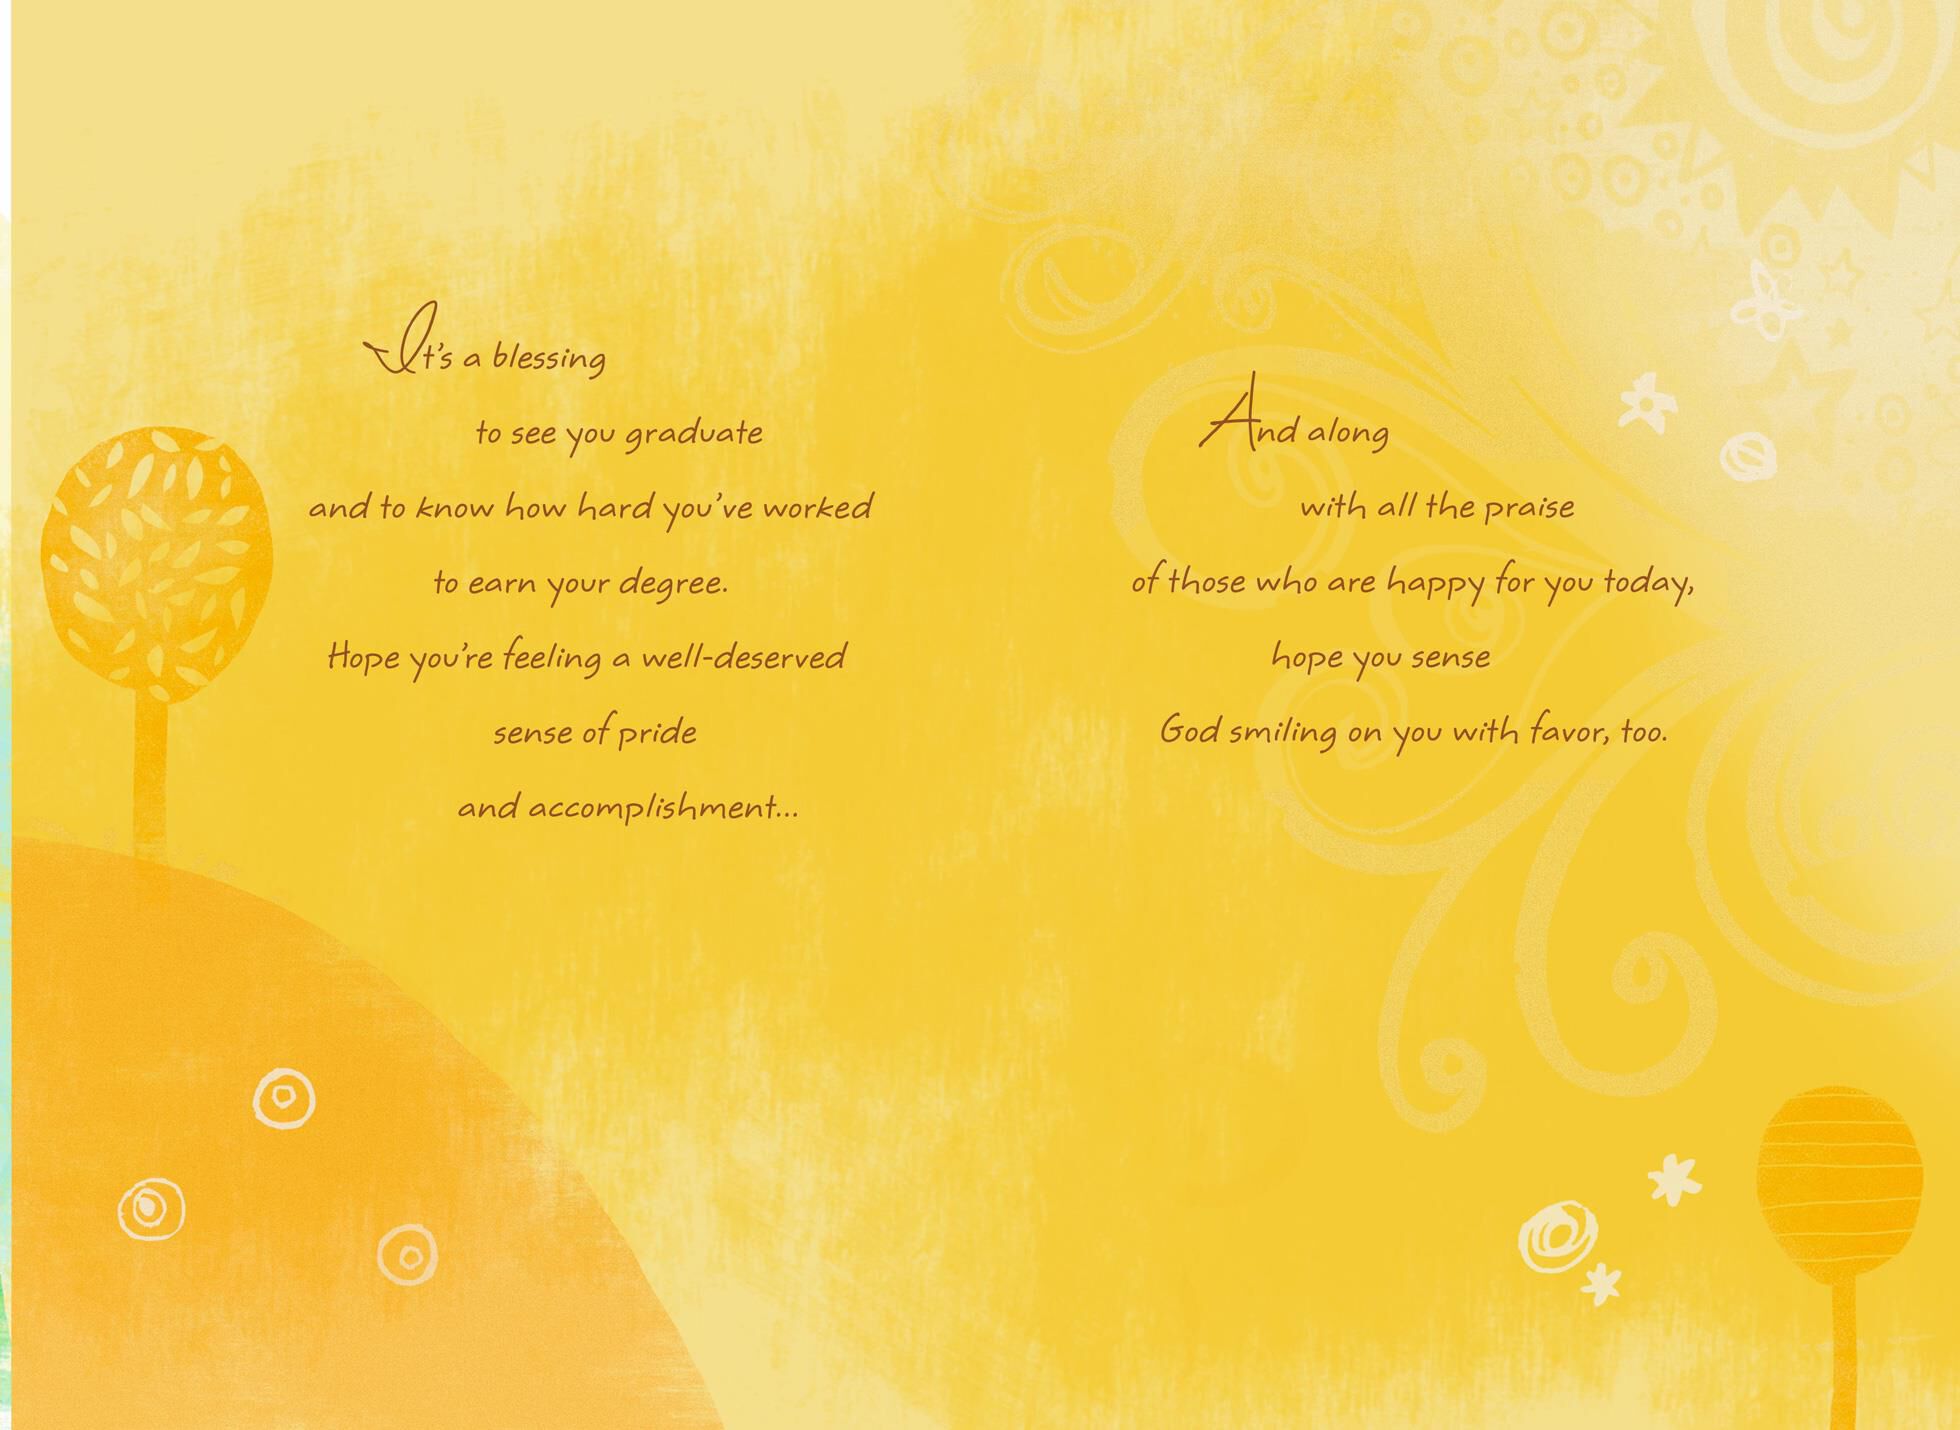 It's a blessing
to see you graduate
and to know how hard you've worked
to earn your degree.
Hope you're feeling a well-deserved
sense of pride
and accomplishment...
And along
with all the praise
of those who are happy for you today,
hope you sense
God smiling on you with favor, too.